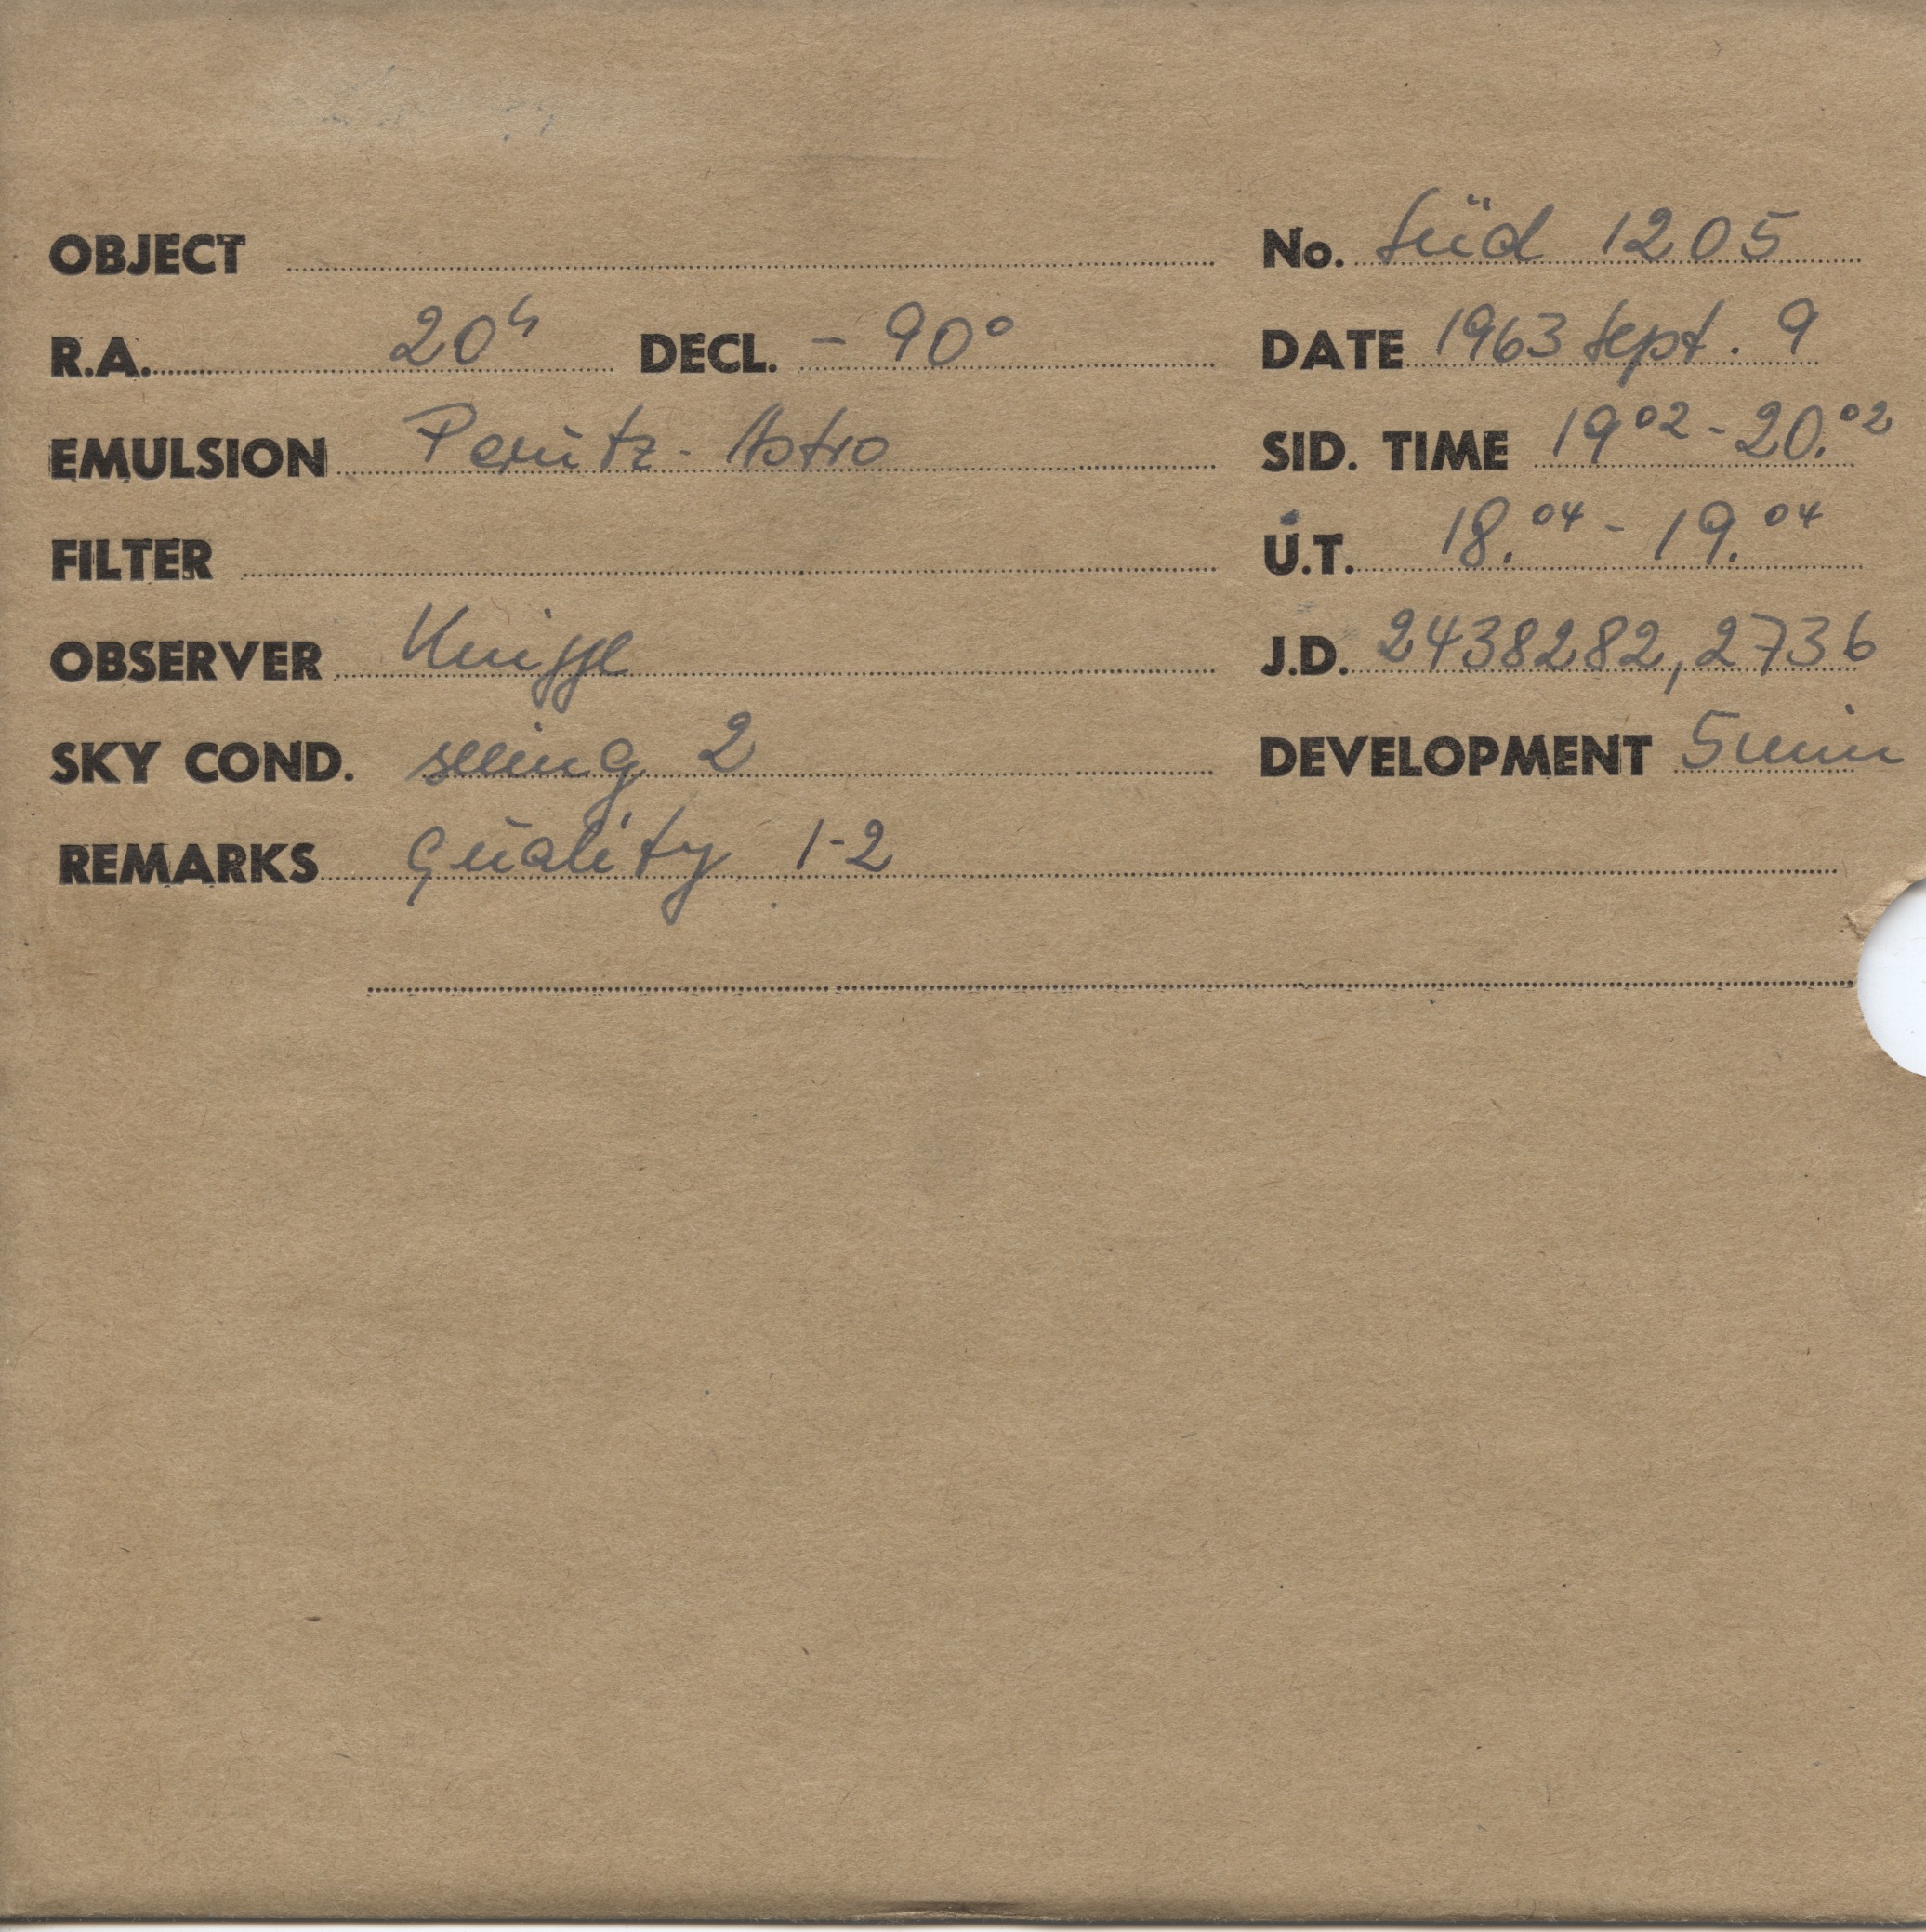 OBJECT
No. Süd 1205
R.A. 20h DECL. - 90°
DATE 1963 Sept. 9
EMULSION Perutz-Astro
SID. TIME 19 02 - 20. 02
FILTER
U.T. 18. 04 - 19. 04
OBSERVER
J.D. 2438282,2736
SKY COND. seeing 2
DEVELOPMENT 5min
REMARKS Quality 1-2